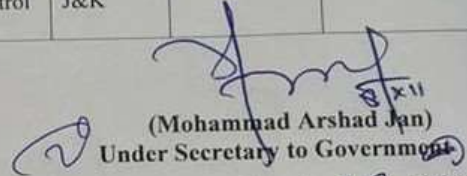 J&K
8/XII
(Mohammad Arshad Jan)
Under Secretary to Government